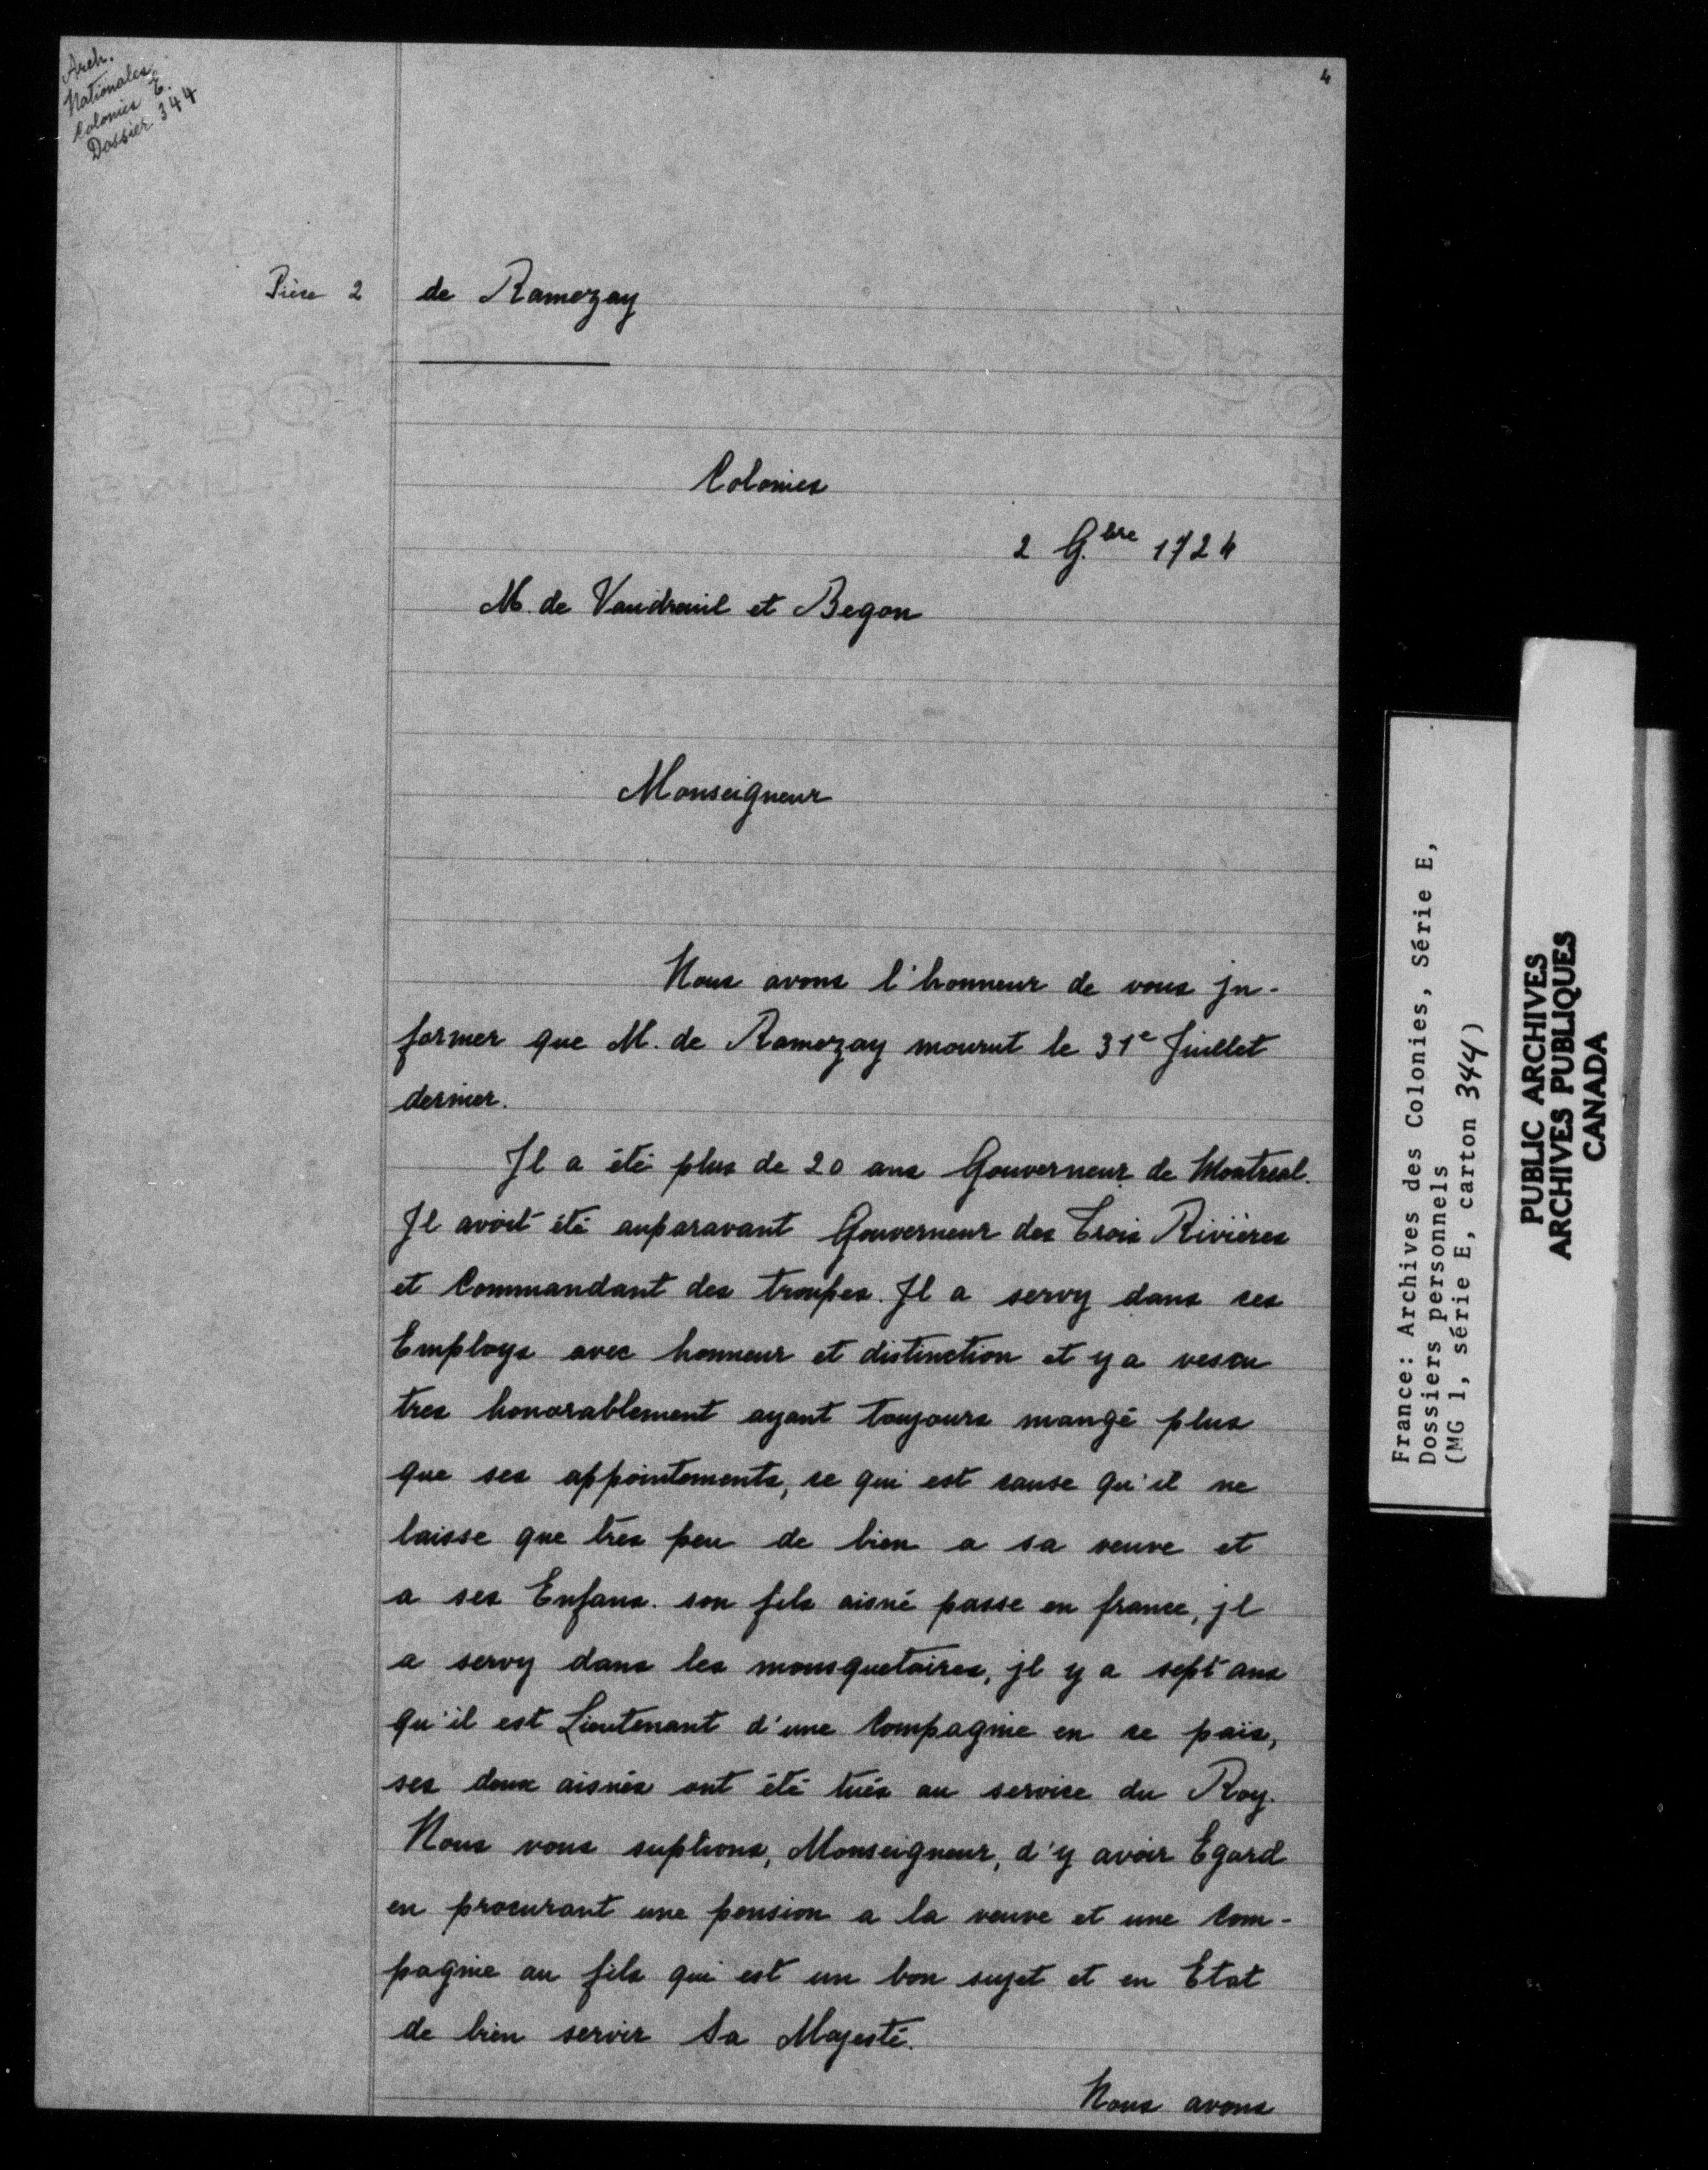 Arch.
Nationales
Colonies E.
Dossier 344
4
Pièce 2
de Ramezay
Colonies
2 9.bre 1724
M. de Vaudreuil et Begon
Monseigneur
Nous avons l'honneur de vous jn-
former que M. de Ramezay mourut le 31e Juillet
dernier.
Jl a été plus de 20 ans Gouverneur de Montreal.
Jl avoit été auparavant Gouverneur des Trois Rivières
et Commandant des troupes. Jl a servy dans ces
Employs avec honneur et distinction et y a vescu
tres honorablement ayant toujours mangé plus
que ses appointements, ce qui est cause qu'il ne
laisse que très peu de bien a sa veuve et
a ses Enfans. son fils aisné passe en france, jl
a servy dans les mousquetaires, jl y a sept ans
qu'il est Lieutenant d'une Compagnie en ce païs,
ses deux aisnés ont été tués au service du Roy.
Nous vous suplions, Monseigneur, d'y avoir Egard
en procurant une pension a la veuve et une Com-
pagnie au fils qui est un bon sujet et en Etat
de bien servir Sa Majesté.
Nous avons
France: Archives des Colonies, Série E,
Dossiers personnels
(MG 1, série E, carton 344)
PUBLIC ARCHIVES
ARCHIVES PUBLIQUES
CANADA